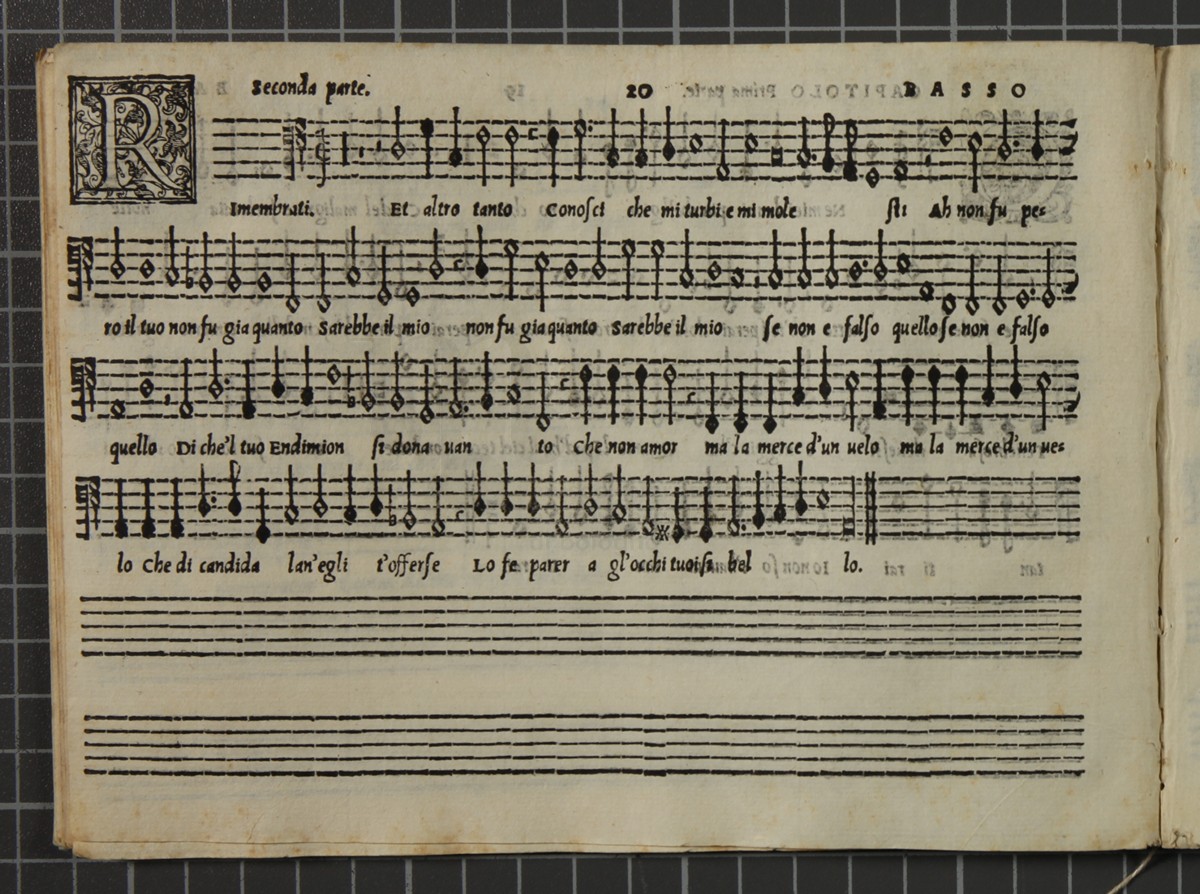 Seconda parte. 20 BASSO
RImembrati. Et altro tanto Conosci che mi turbi e mi mole sti Ah non fu pe-
ro il tuo non fu gia quanto Sarebbe il mio non fu gia quanto Sarebbe il mio se non e falso quello se non e falso
quello Di che'l tuo Endimion si dona uan to Che non amor ma la merce d'un uelo ma la merce d'un ue-
lo Che di candida lan'egli t'offerse Lo fe parer a gl'occhi tuoi si bel lo.